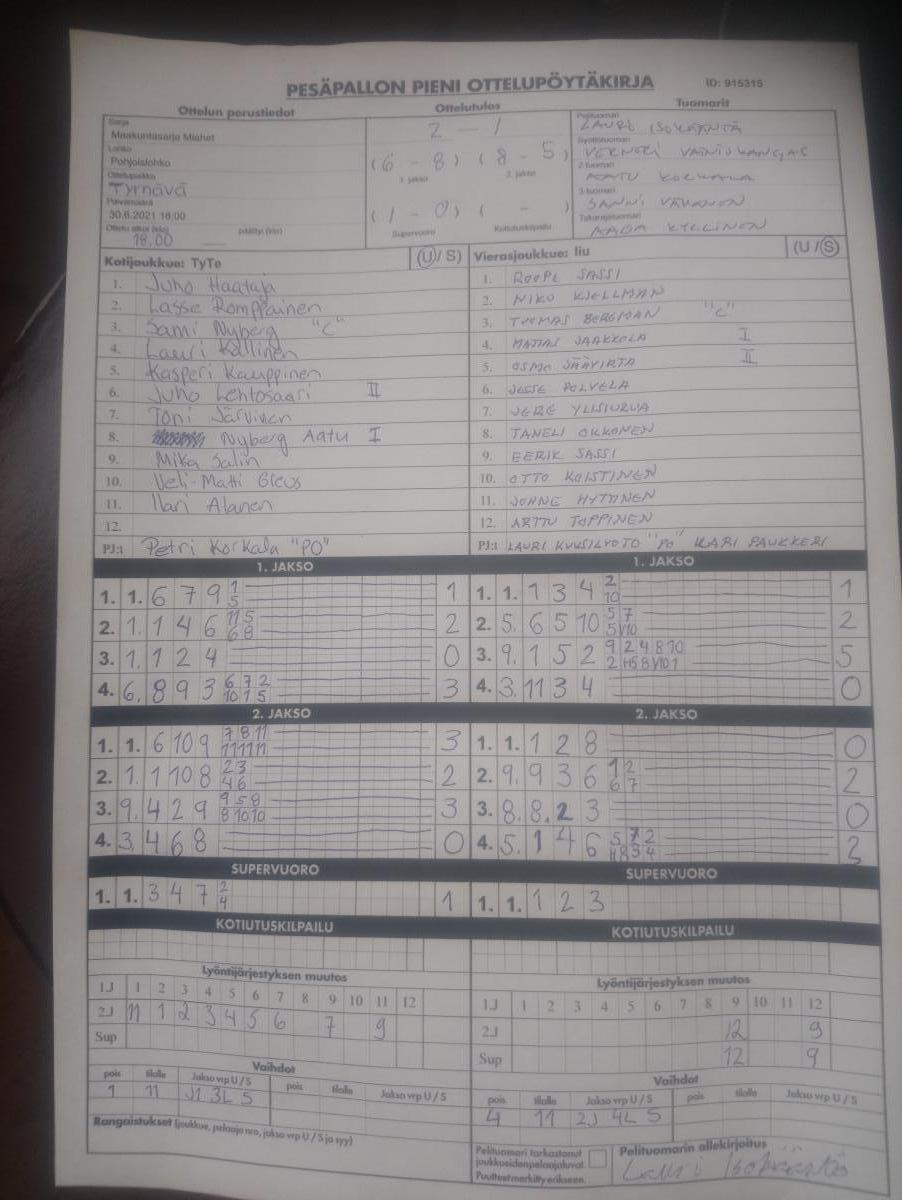 PESÄPALLON PIENI OTTELUPÖYTÄKIRJA ID: 915315
Ottelun perustiedot Ottelutulos Tuomarit
Sarja
Maakuntasarja Miehet
Lohko
Pohjoislohko
Ottelupaikka
Tyrnävä
Päivämäärä
30.6.2021 18:00
Ottelu alkoi (klo) päättyi (klo)
18.00
2 - 1
(6 - 8) (8 - 5)
1. jakso 2. jakso
(1 - 0) ( - )
Supervuoro Kotiutuskilpailu
Pelituomari
LAURI ISOKÄÄNTÄ
Syöttötuomari
VERNERI VAINIOKANGAS
2-tuomari
AATU KORKALA
3-tuomari
SANNI
Takarajatuomari
AADA KYLLINEN
Kotijoukkue: TyTe (U / S)
1. Juho Haataja
2. Lasse Romppainen
3. Sami Nyberg "C"
4. Lauri Kallinen
5. Kasperi Kauppinen
6. Juho Lehtosaari II
7. Toni Järvinen
8. Nyberg Aatu I
9. Mika Salin
10. Veli-Matti Gleus
11. Ilari Alanen
12.
PJ:t Petri Korkala "PO"
Vierasjoukkue: Iiu (U / S)
1. ROOPE SASSI
2. NIKO KJELLMAN
3. TUOMAS BERGMAN "C"
4. MATIAS JAAKKOLA I
5. OSMO JÄÄVIRTA II
6. JESSE POLVELA
7. JERE YLISIURUA
8. TANELI OKKONEN
9. EERIK SASSI
10. OTTO KOISTINEN
11. JONNE HYTTINEN
12. ARTTU TOPPINEN
PJ:t LAURI KUUSILYOTO "PO" KARI PAUKKERI
1. JAKSO 1. JAKSO
1. 1. 6 7 9 1 1
5
2. 1. 1 4 6 11 5 2
6 8
3. 1. 1 2 4 0
4. 6. 8 9 3 6 7 2 3
10 1 5
1. 1. 1 3 4 2 1
10
2. 5. 6 5 10 5 7 2
3. 9. 1 5 2 9 2 4 8 10 5
4. 3. 11 3 4 0
2. JAKSO 2. JAKSO
1. 1. 6 10 9 7 8 11 3
11 11 11
2. 1. 1 10 8 2 3 2
4 6
3. 9. 4 2 9 9 5 8 3
8 10 10
4. 3. 4 6 8 0
1. 1. 1 2 8 0
2. 9. 9 3 6 1 2 2
6 7
3. 8. 8. 2 3 0
4. 5. 1 4 6 5 7 2 3
SUPERVUORO SUPERVUORO
1. 1. 3 4 7 2 1
4
1. 1. 1 2 3
KOTIUTUSKILPAILU KOTIUTUSKILPAILU
Lyöntijärjestyksen muutos
1.J 1 2 3 4 5 6 7 8 9 10 11 12
2.J 11 1 2 3 4 5 6 7 9
Sup
Lyöntijärjestyksen muutos
1.J 1 2 3 4 5 6 7 8 9 10 11 12
2.J 12 9
Sup 12 9
Vaihdot
pois tilalle Jakso vrp U / S pois tilalle Jakso vrp U / S
1 11 J1 3L S
Rangaistukset (joukkue, pelaaja nro, jakso vrp U / S ja syy)
Vaihdot
pois tilalle Jakso vrp U / S pois tilalle Jakso vrp U / S
4 11 2J 4L S
Pelituomari tarkastanut
joukkueiden pelaajaluvat.
Puutteet merkitty erikseen.
Pelituomarin allekirjoitus
Lauri Isokääntä